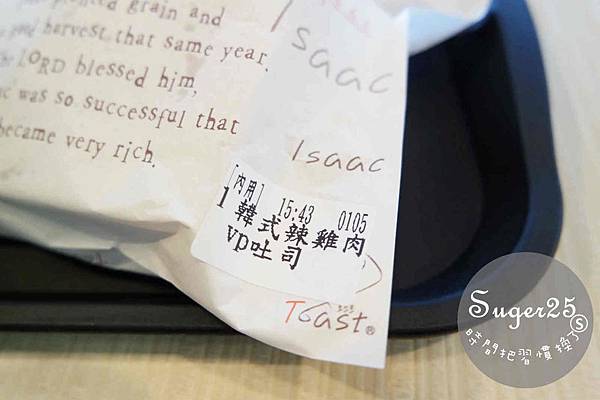 planted grain and
harvest that same year.
LORD blessed him,
was so successful that
became very rich.
Isaac
Isaac
[內用] 15:43 0105
1韓式辣雞肉
vp吐司
Toast®
Suger25
時間把習慣換了
S